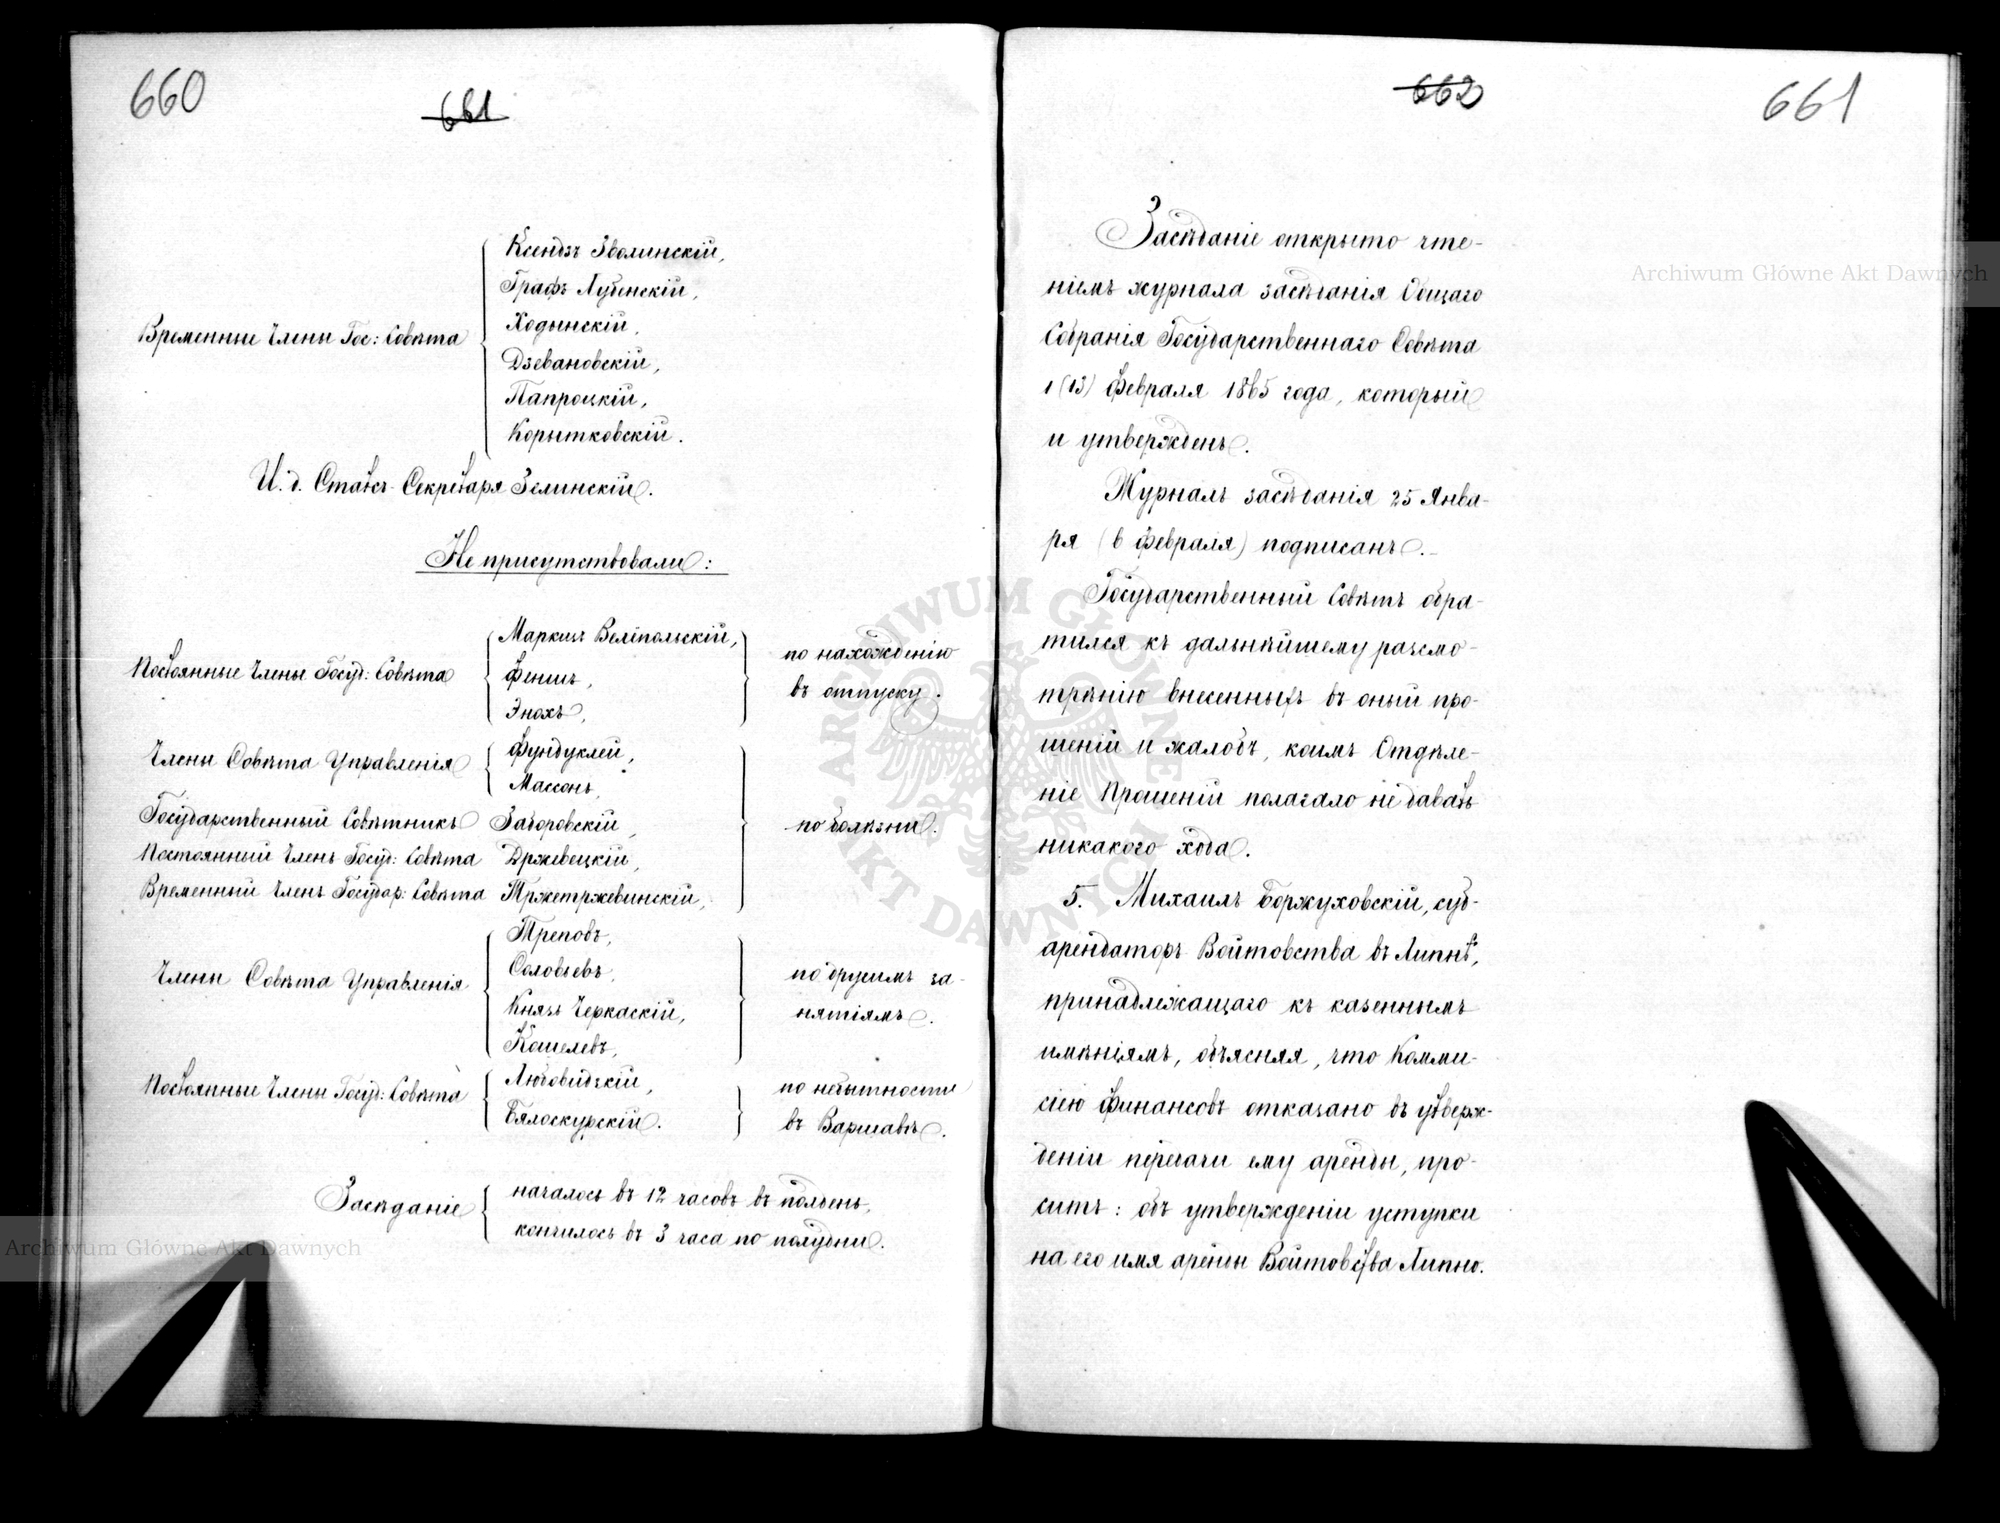 660
661
Ксендзъ Зволинскій,
Графъ Лубенскій,
Ходынскій,
Временные Члены Гос: Совѣта
Дзевановскій,
Папроцкій,
Корытковскій.
И. д. Статсъ-Секретаря Зелинскій.
Не присутствовали:
Маркизъ Велёпольскій,
Постоянные Члены Госуд: Совѣта
Феншъ,
Энохъ,
по нахожденію
въ отпуску.
Члены Совѣта Управленія
Фундуклей,
Массонъ,
Государственный Совѣтникъ Заборовскій,
по болѣзни.
Постоянный Членъ Госуд: Совѣта Држевецкій,
Временный Членъ Государ: Совѣта Тржетржевинскій,
Треповъ,
Соловьевъ,
Члены Совѣта Управленія
Князь Черкаскій,
Кошелевъ,
по другимъ за-
нятіямъ.
Постоянные Члены Госуд: Совѣта
Любовидзкій,
Бялоскурскій.
по небытности
въ Варшавѣ.
Засѣданіе
началось въ 12 часовъ въ полдень,
кончилось въ 3 часа по полудни.
662
661
Засѣданіе открыто чте-
ніемъ журнала засѣданія Общаго
Собранія Государственнаго Совѣта
1 (13) Февраля 1865 года, который
и утвержденъ.
Журналъ засѣданія 25 Янва-
ря (6 Февраля) подписанъ.
Государственный Совѣтъ обра-
тился къ дальнѣйшему разсмо-
трѣнію внесенныхъ въ оный про-
шеній и жалобъ, коимъ Отдѣле-
ніе Прошеній полагало не давать
никакого хода.
5. Михаилъ Боржуховскій, суб-
арендаторъ Войтовства въ Липнѣ,
принадлежащаго къ казеннымъ
имѣніямъ, объясняя, что Комми-
сіею Финансовъ отказано въ утверж-
деніи передачи ему аренды, про-
ситъ: объ утвержденіи уступки
на его имя аренды Войтовства Липно.
Archiwum Główne Akt Dawnych
Archiwum Główne Akt Dawnych
ARCHIWUM GŁÓWNE AKT DAWNYCH